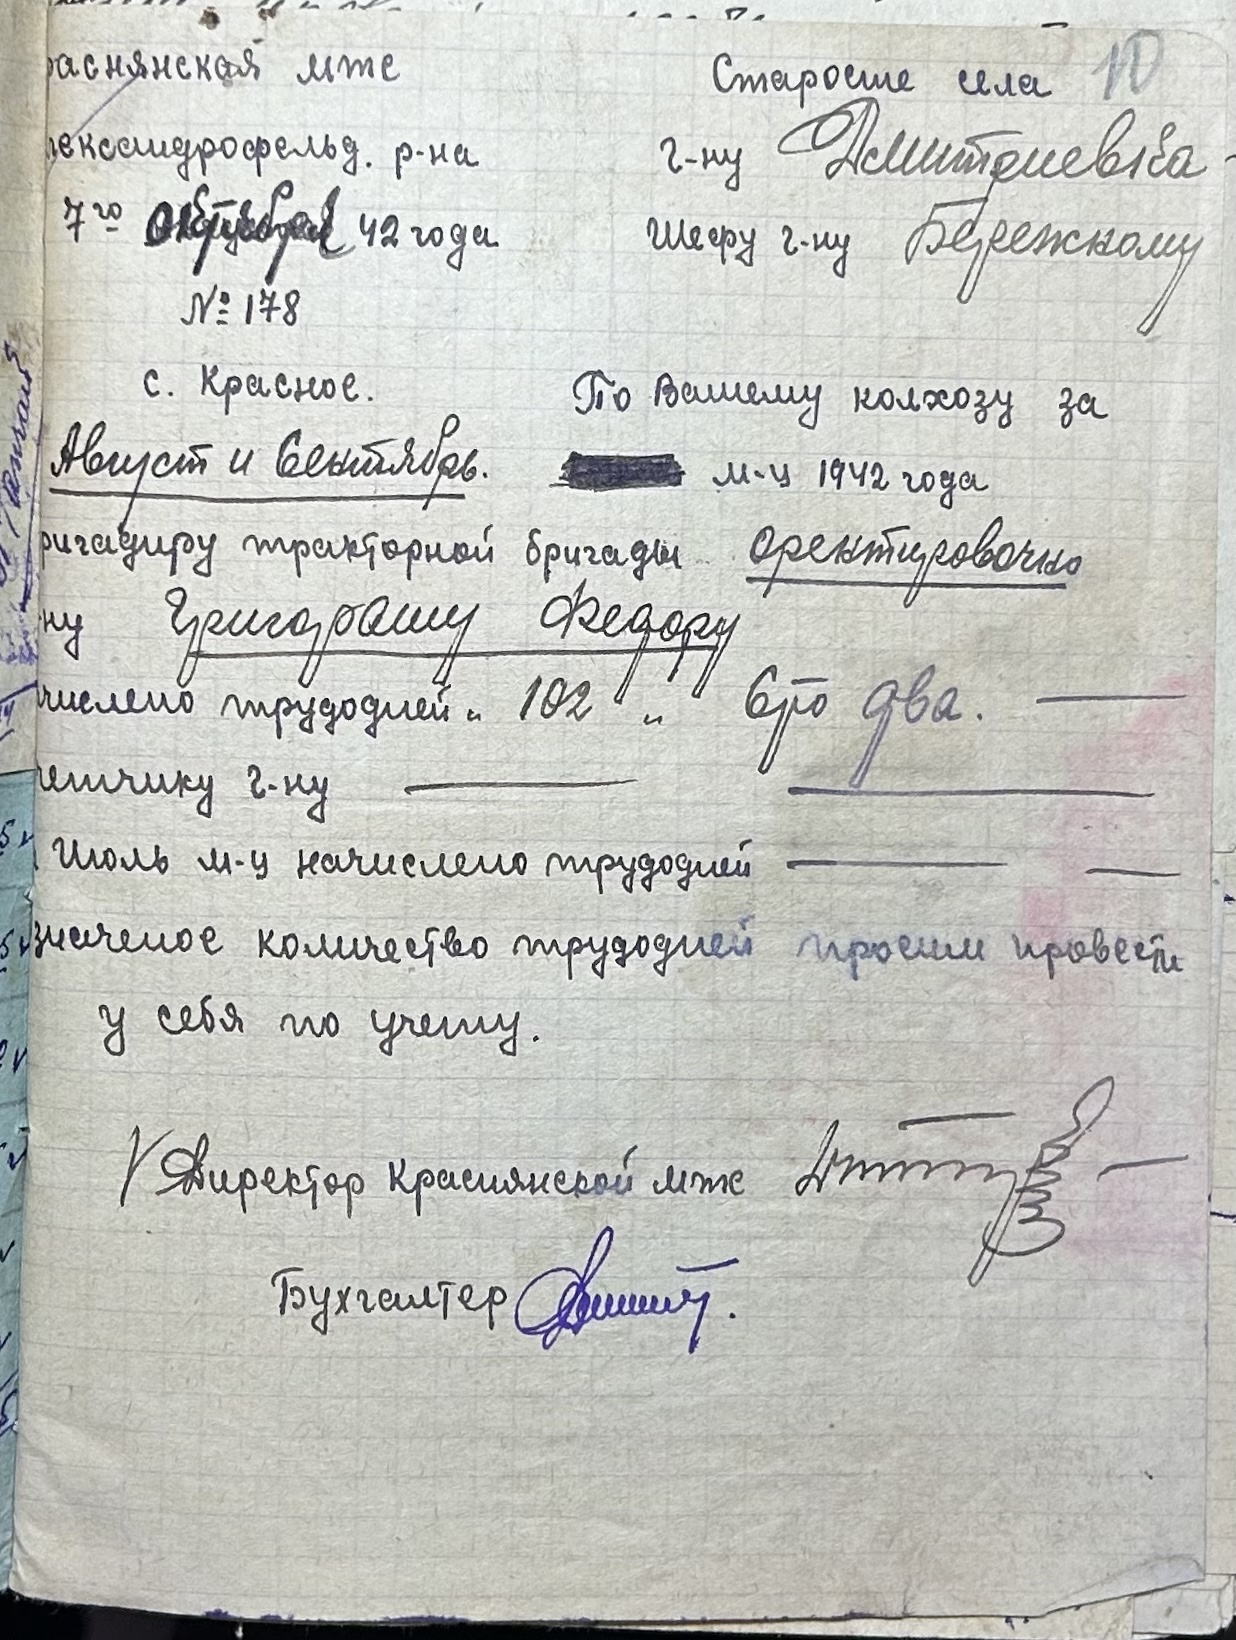 аснянская мтс
Старосте села 10
лександрофельд. р-на
г-ну Дмитриевка
7го октября 42 года
Шефу г-ну Бережкому
№ 178
с. Красное.
По Вашему колхозу за
Август и Сентябрь.
м-ц 1942 года
ригадиру тракторной бригады оректировочно
ну Григорашу Федору
числено трудодней „ 102 „ Сто два.
четчику г-ну
Июль м-ц начислено трудодней
значеное количество трудодней просим провести
у себя по учету.
Директор Краснянской мтс
Бухгалтер